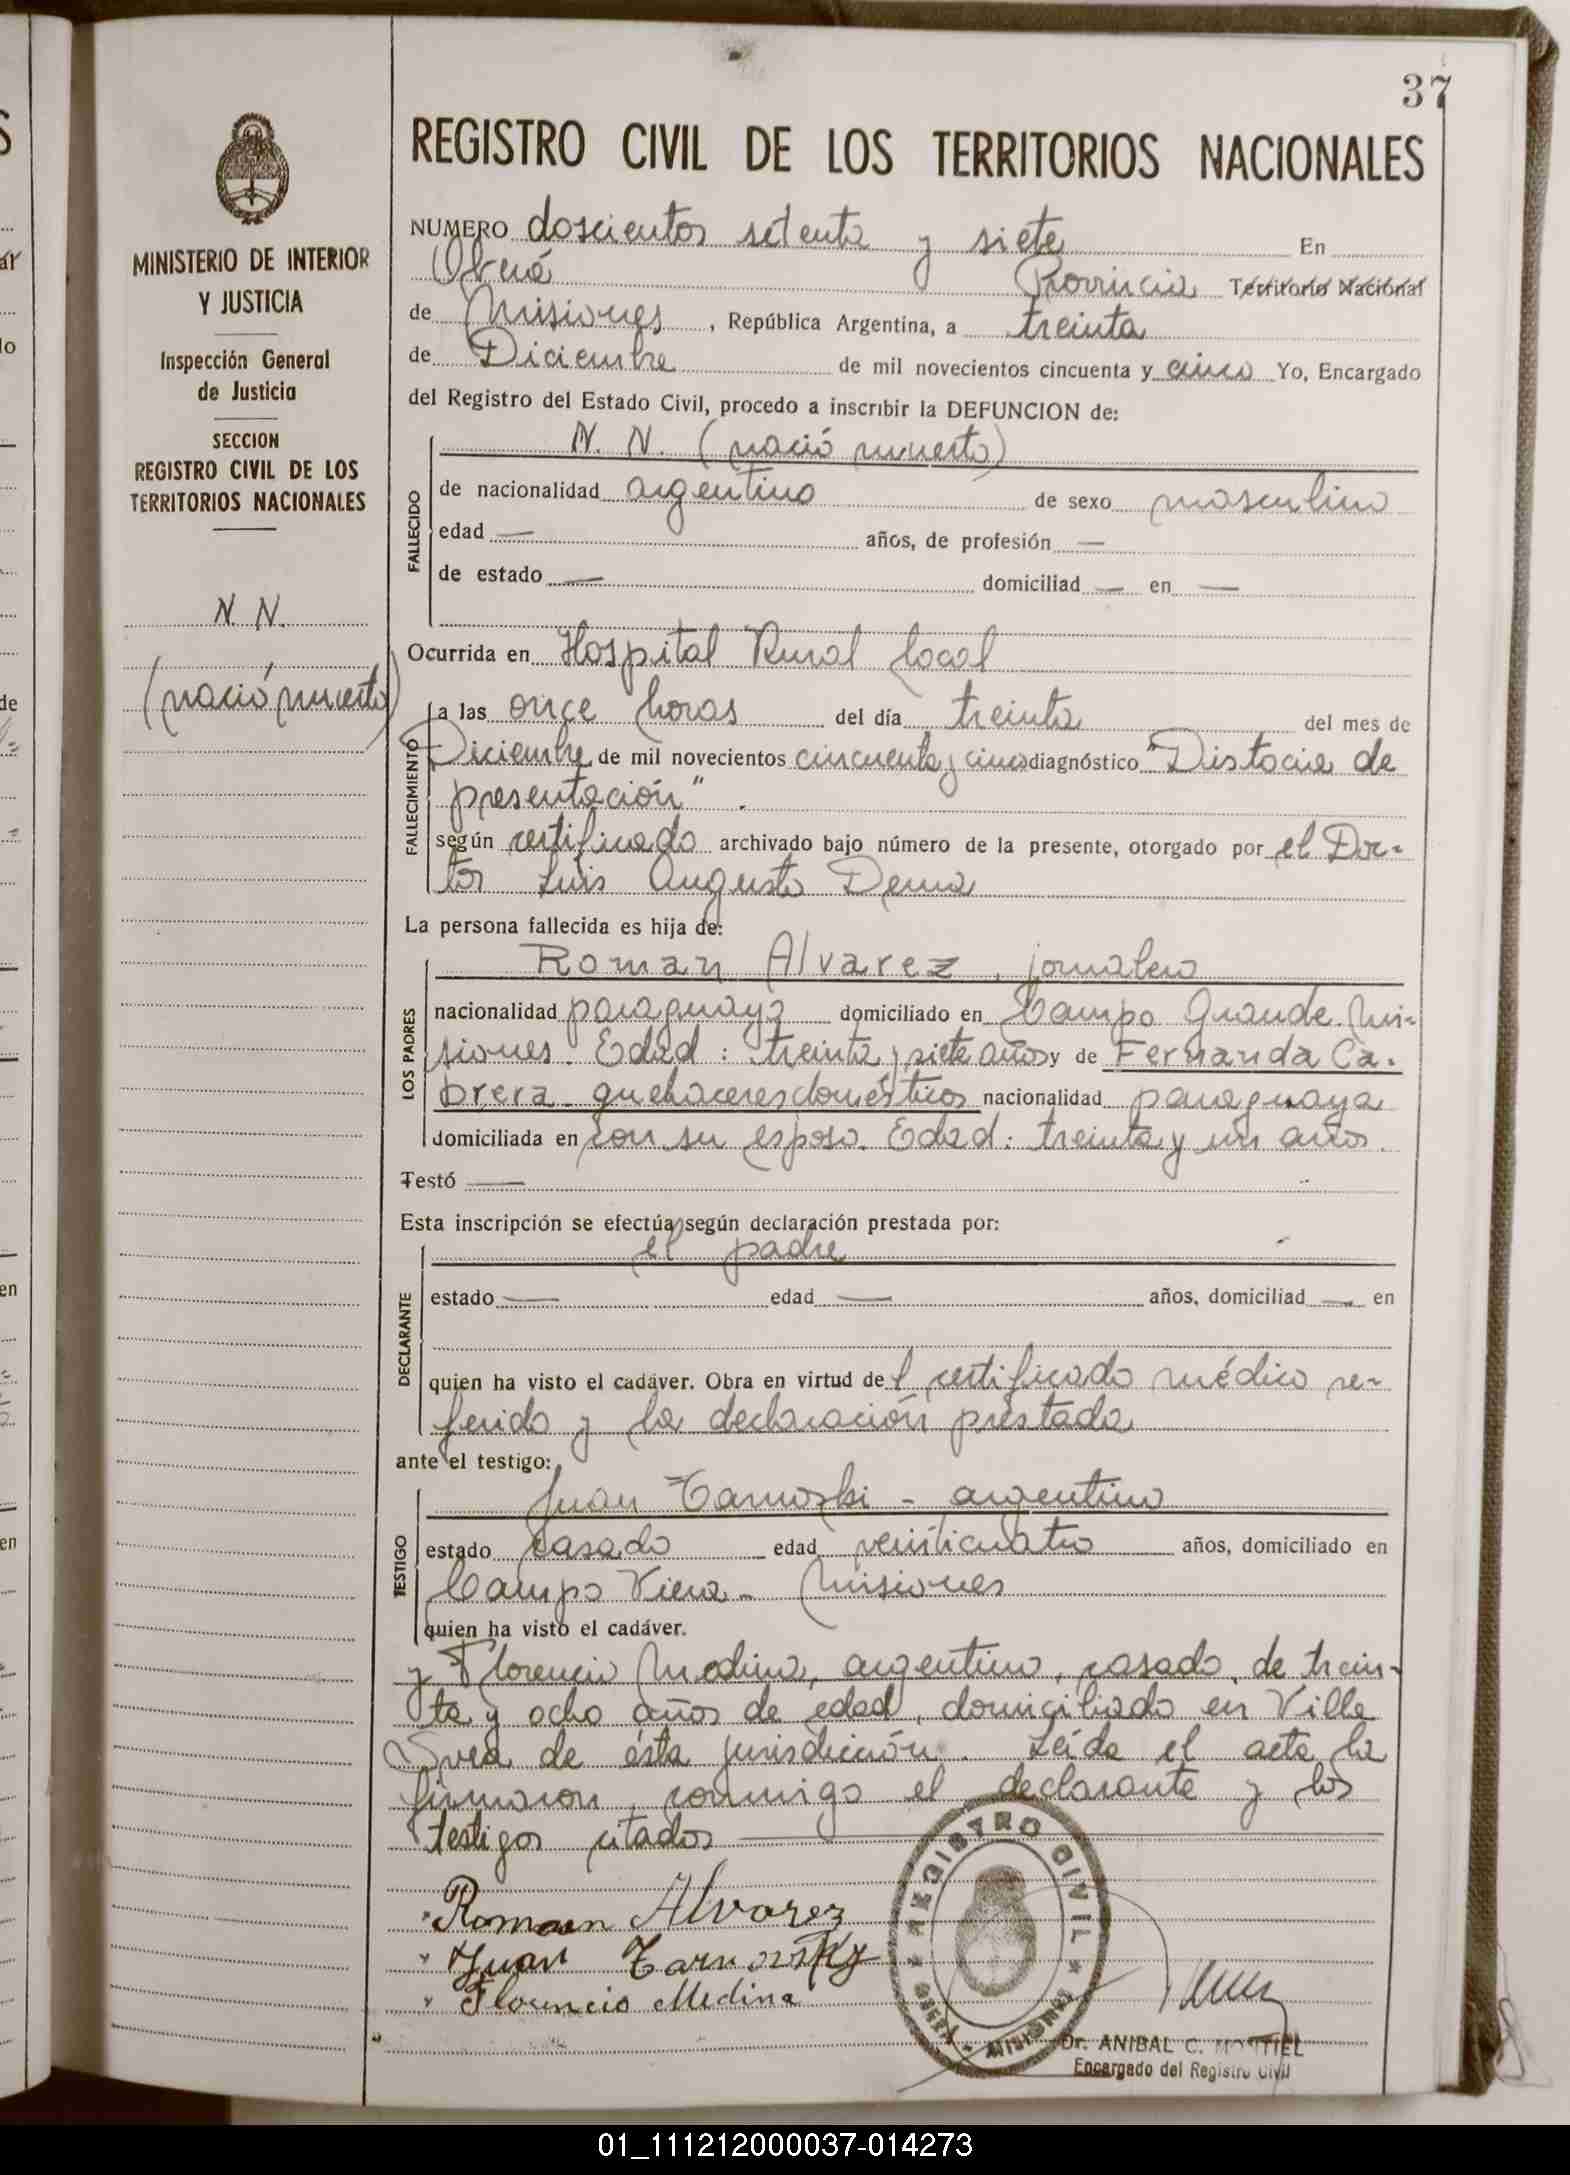 37
REGISTRO CIVIL DE LOS TERRITORIOS NACIONALES
MINISTERIO DE INTERIOR
Y JUSTICIA
Inspección General
de Justicia
SECCION
REGISTRO CIVIL DE LOS
TERRITORIOS NACIONALES
N. N.
(nació muerto)
NUMERO doscientos setenta y siete En
Oberá Provincia Territorio Nacional
de Misiones, República Argentina, a treinta
de Diciembre de mil novecientos cincuenta y cinco Yo, Encargado
del Registro del Estado Civil, procedo a inscribir la DEFUNCION de:
FALLECIDO
N. N. (nació muerto)
de nacionalidad argentino de sexo masculino
edad — años, de profesión —
de estado — domiciliad — en —
Ocurrida en Hospital Rural local
FALLECIMIENTO
a las once horas del día treinta del mes de
Diciembre de mil novecientos cincuenta y cinco diagnóstico "Distocia de
presentación".
según certificado archivado bajo número de la presente, otorgado por el Doc-
tor Luis Augusto Dema
La persona fallecida es hija de:
LOS PADRES
Roman Alvarez, jornalero
nacionalidad paraguaya domiciliado en Campo Grande. Mi-
siones. Edad: treinta y siete años y de Fernanda Ca-
brera - quehaceres domésticos nacionalidad paraguaya
domiciliada en con su esposo. Edad: treinta y un años.
Testó —
Esta inscripción se efectúa según declaración prestada por:
DECLARANTE
el padre
estado — edad — años, domiciliad — en
quien ha visto el cadáver. Obra en virtud del certificado médico re-
ferido y la declaración prestada
ante el testigo:
TESTIGO
Juan Tarnoski - argentino
estado casado edad veinticuatro años, domiciliado en
Campo Viera - Misiones
quien ha visto el cadáver.
y Florencio Medina, argentino, casado, de trein-
ta y ocho años de edad, domiciliado en Villa
Svea de ésta jurisdicción. Leída el acta la
firmaron conmigo el declarante y los
testigos citados —
Roman Alvarez
Juan Tarnosky
Florencio Medina
REGISTRO CIVIL
OBERÁ - MISIONES
Dr. ANIBAL C. MONTIEL
Encargado del Registro Civil
01_111212000037-014273